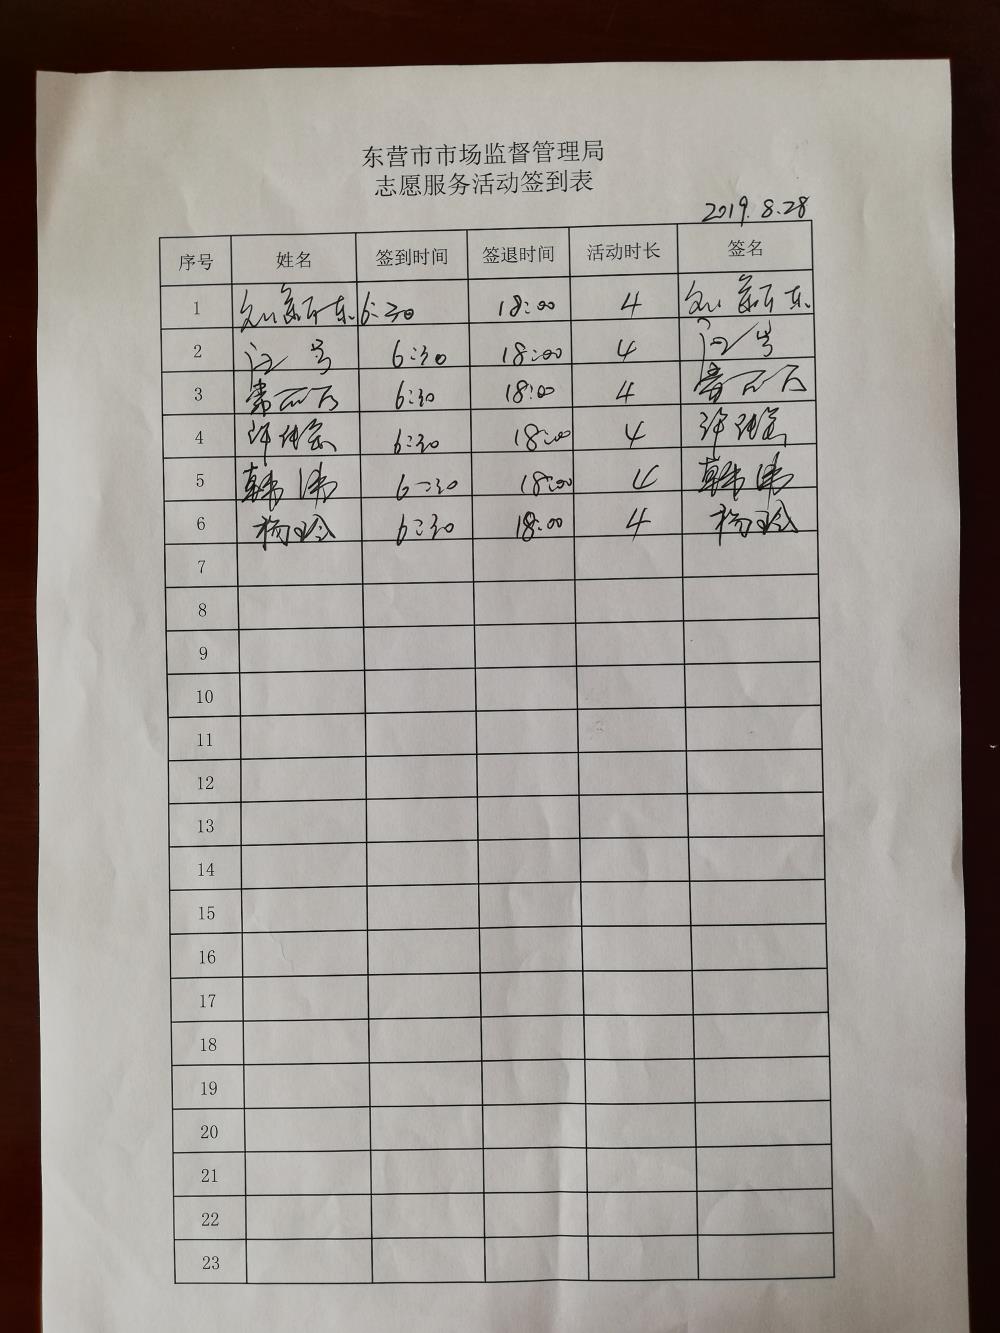 东营市市场监督管理局
志愿服务活动签到表
2019.8.28
序号 姓名 签到时间 签退时间 活动时长 签名
1 刘新东 6:30 18:00 4 刘新东
2 6:30 18:00 4
3 常 6:30 18:00 4 常
4 许 6:30 18:00 4 许
5 韩伟 6:30 18:00 4 韩伟
6 杨玲 6:30 18:00 4 杨玲
7
8
9
10
11
12
13
14
15
16
17
18
19
20
21
22
23